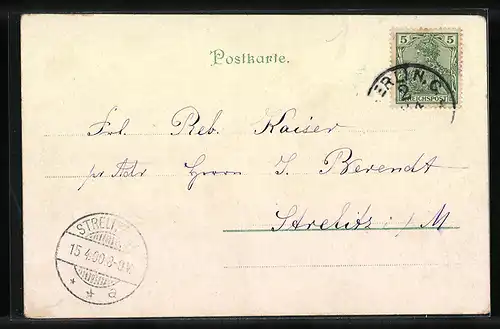 Postkarte.
5 5
REICHSPOST
BERLIN.C.
2
Frl. Reb. Kaiser
pr Adr Herrn J. Berendt
Strelitz i/M
STREL
15.4.00.8-9.V.
* * a